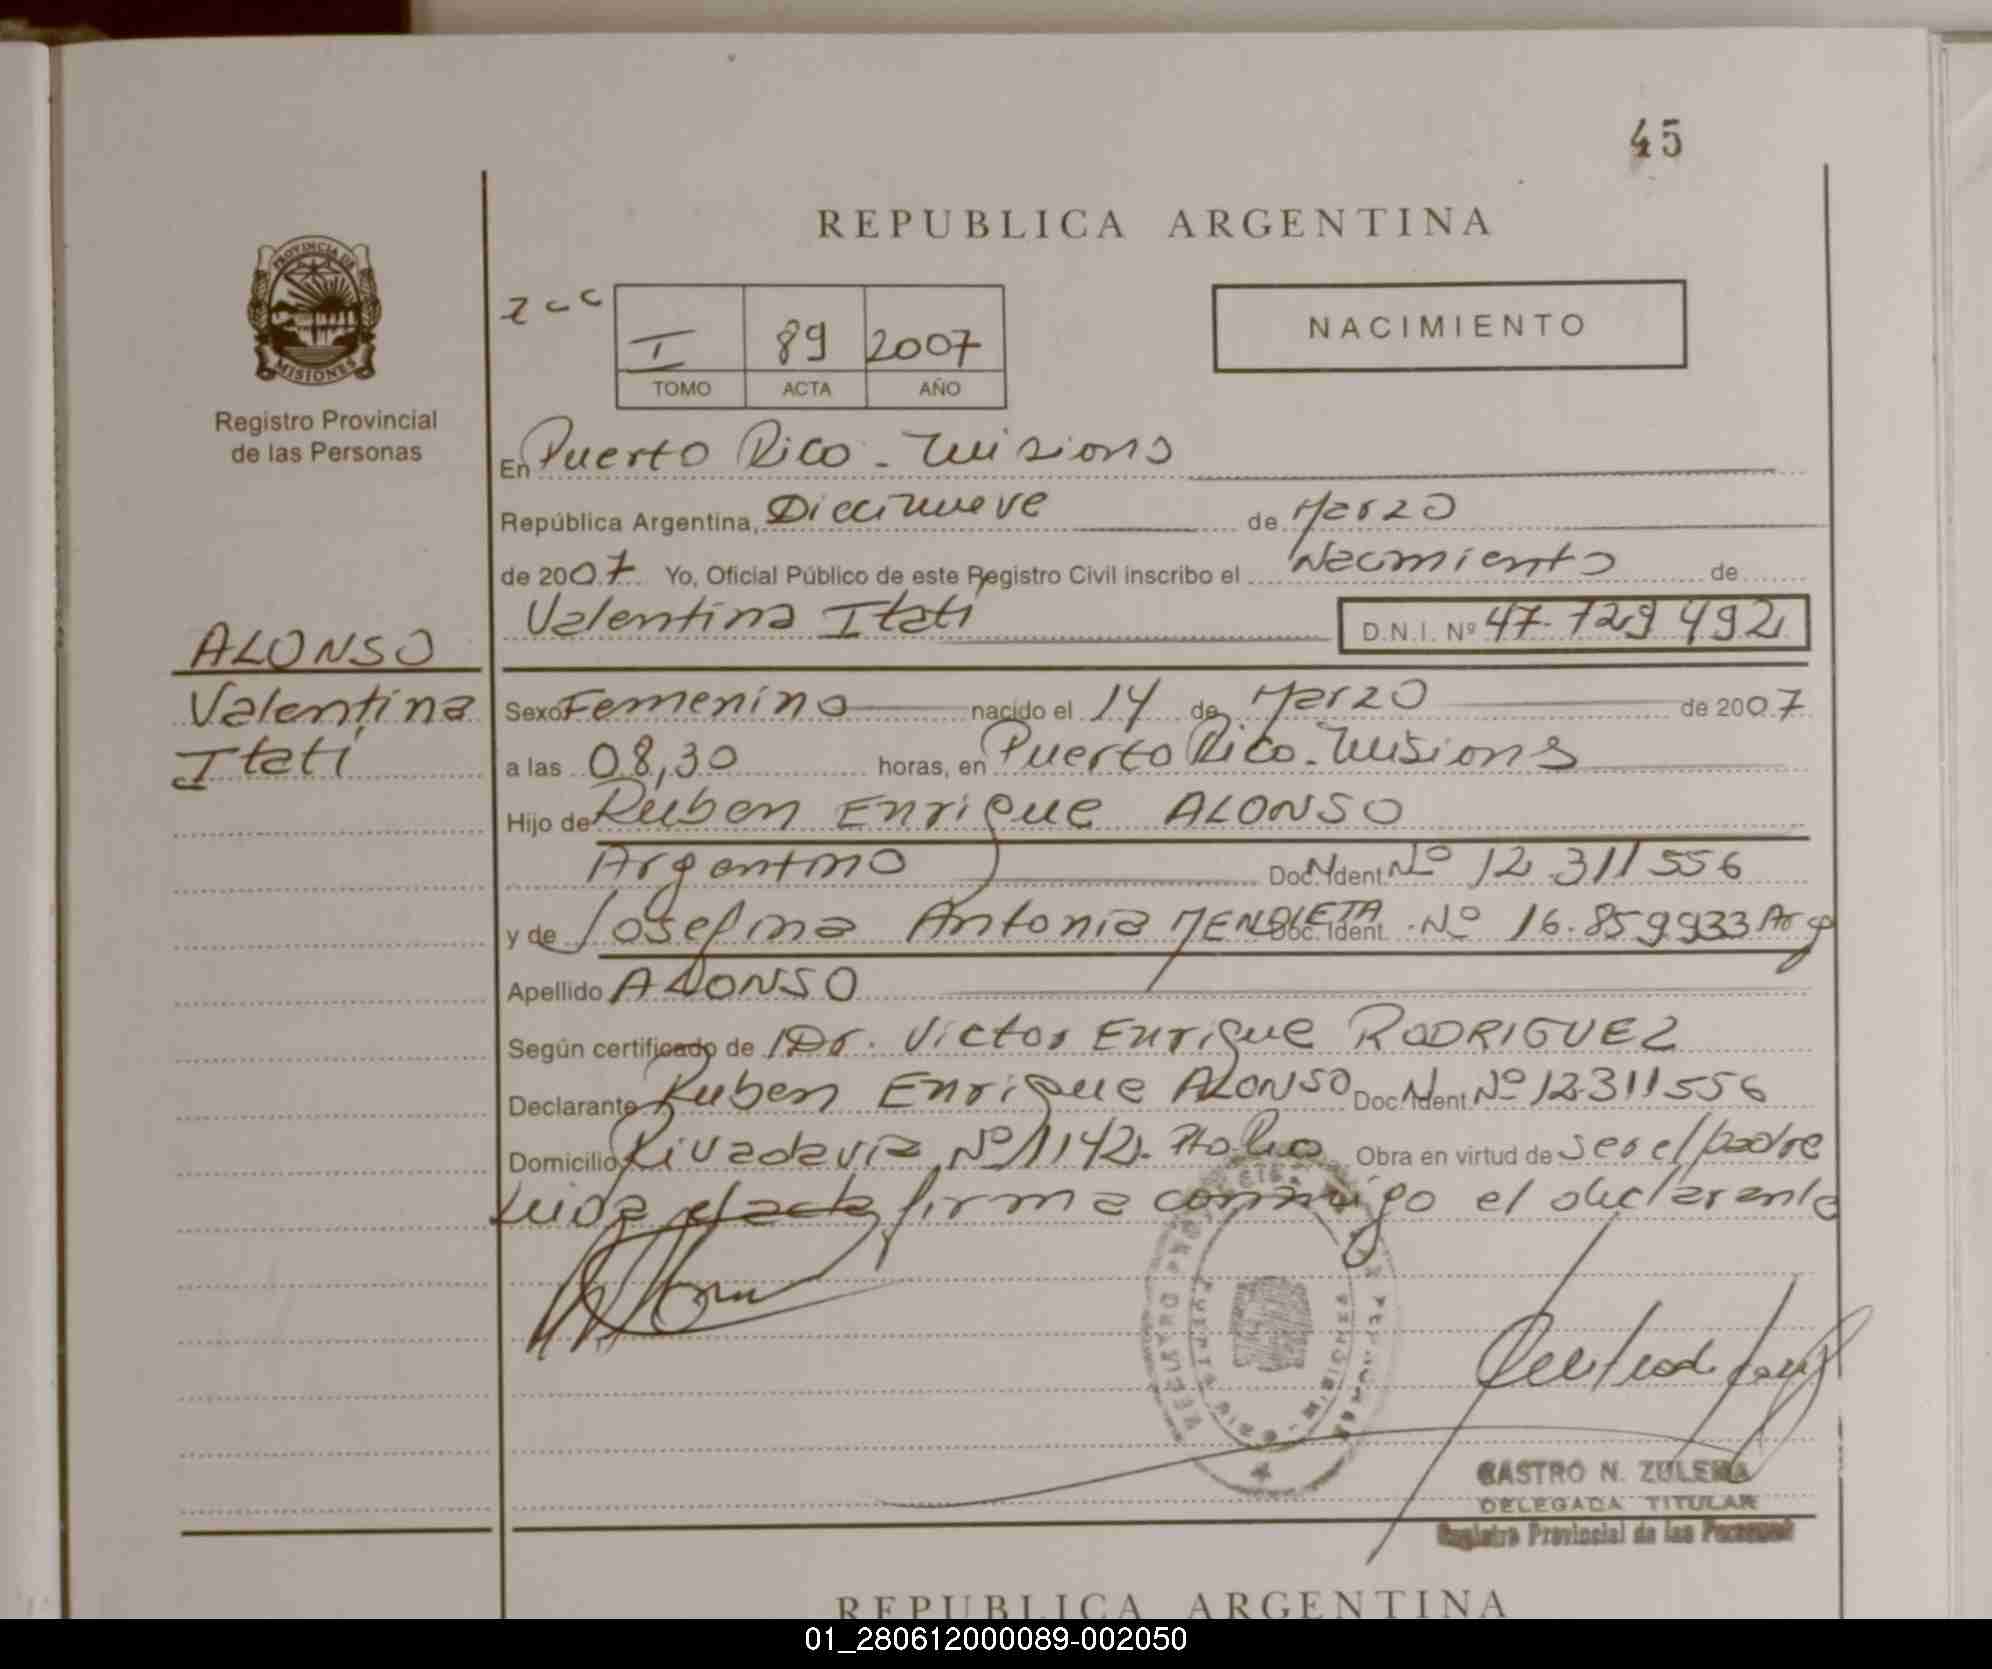 45
REPUBLICA ARGENTINA
PROVINCIA DE
MISIONES
Registro Provincial
de las Personas
I 89 2007
TOMO ACTA AÑO
NACIMIENTO
En Puerto Rico - Misiones
República Argentina, Diecinueve de Marzo
de 2007 Yo, Oficial Público de este Registro Civil inscribo el Nacimiento de
Valentina Itatí D.N.I. Nº 47.729 492
ALONSO
Valentina
Itatí
Sexo Femenino nacido el 14 de Marzo de 2007
a las 08,30 horas, en Puerto Rico - Misiones
Hijo de Ruben Enrique ALONSO
Argentino Doc. Ident. Nº 12.311556
y de Josefina Antonia MENDIETA Doc. Ident. Nº 16.859933 Arg
Apellido ALONSO
Según certificado de Dr. Victor Enrique RODRIGUEZ
Declarante Ruben Enrique ALONSO Doc. Ident. Nº 12.311556
Domicilio Rivadavia Nº 1142. Pto Rico Obra en virtud de ser el padre
Leida el acta firma conmigo el declarante
CASTRO N. ZULEMA
DELEGADA TITULAR
Registro Provincial de las Personas
REPUBLICA ARGENTINA
01_280612000089-002050